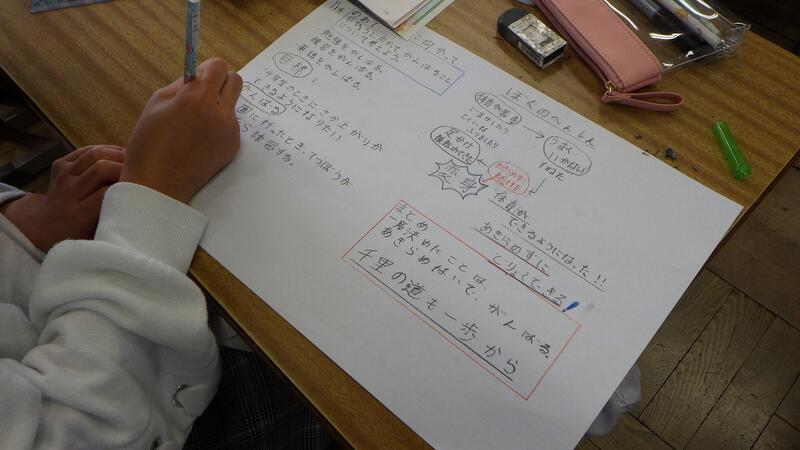 めあて
に向かって
がんばること
について考えよう。
勉強をがんばる。
練習をがんばる。
英語をがんばる。
目標
さか上がりが
できるようになりたい
がんばる
に行ったとき、てつぼうが
練習する。
ぼくのへんしん
体育が苦手
うまく
いかない
足かけ
変身
体育が
できるようになった!!
あきらめずに
どりょくできる!
まとめ
一度決めたことは、
あきらめないで、がんばる。
千里の道も一歩から